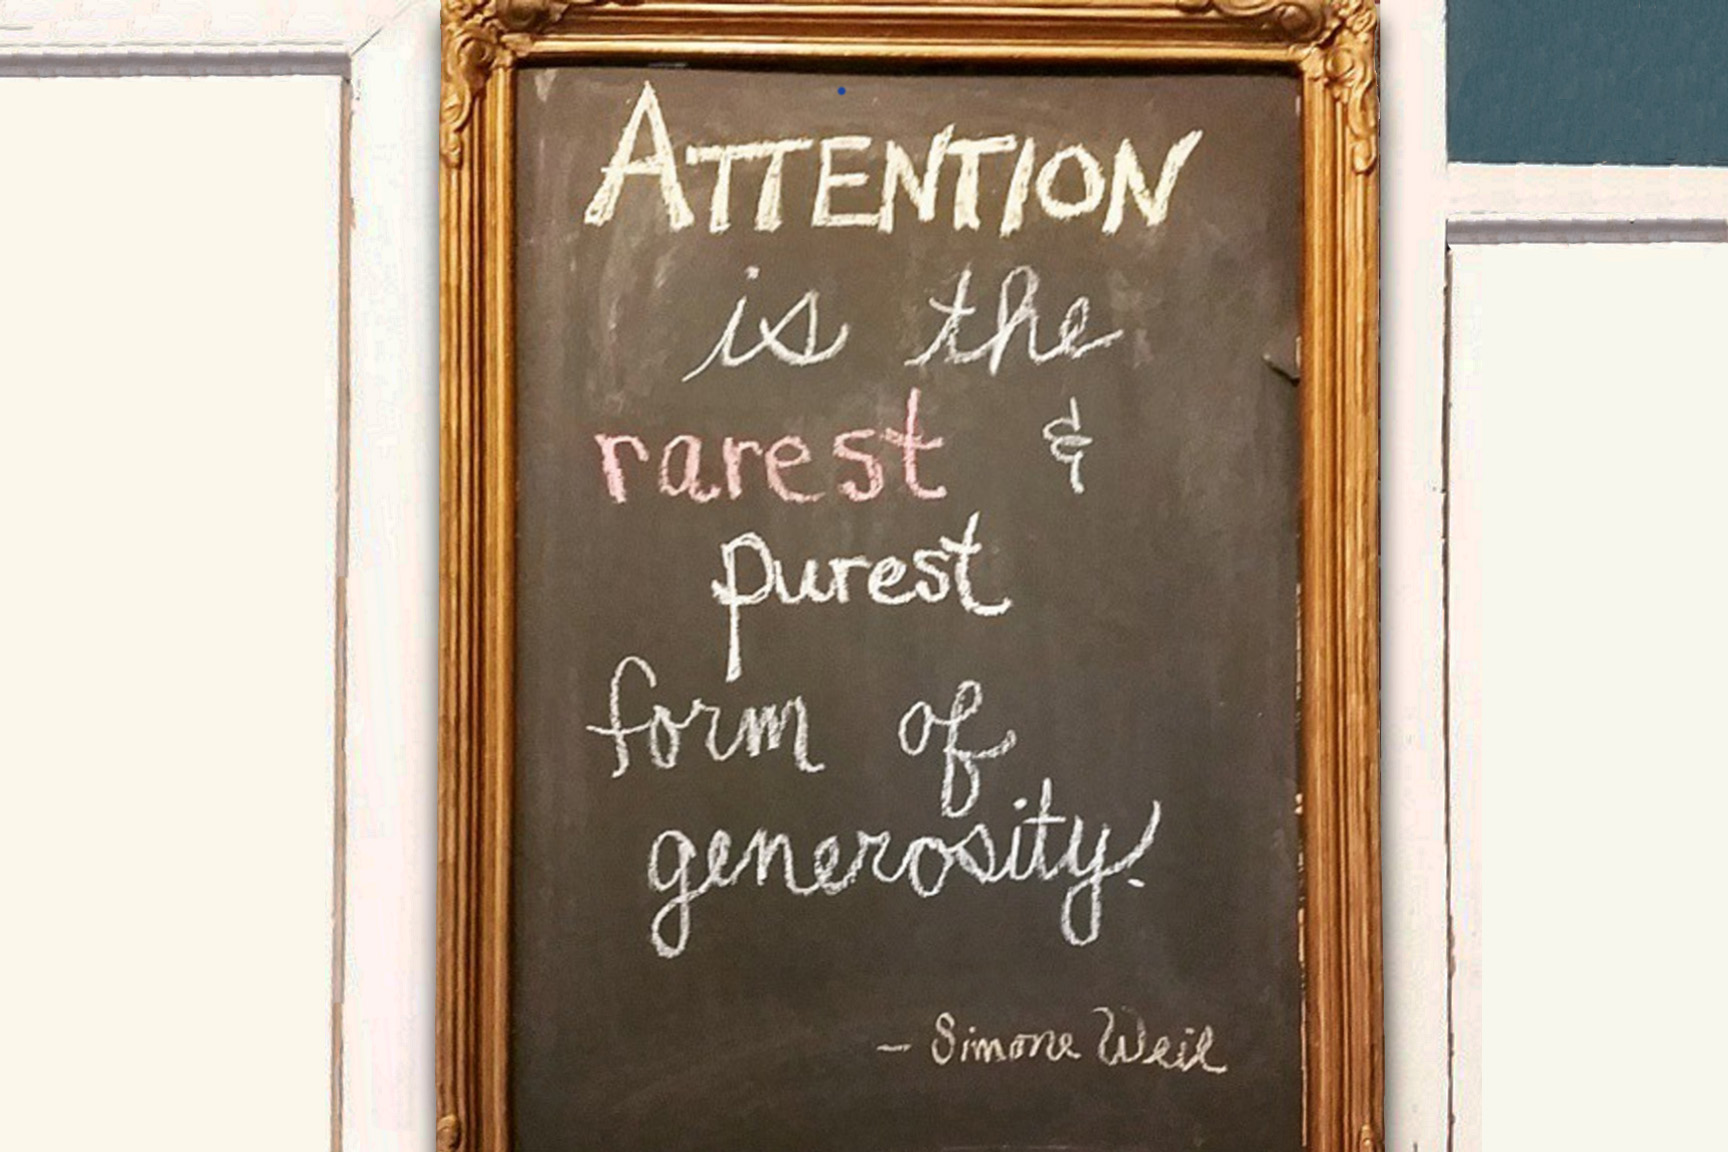 ATTENTION
is the
rarest &
purest
form of
generosity!
- Simone Weil